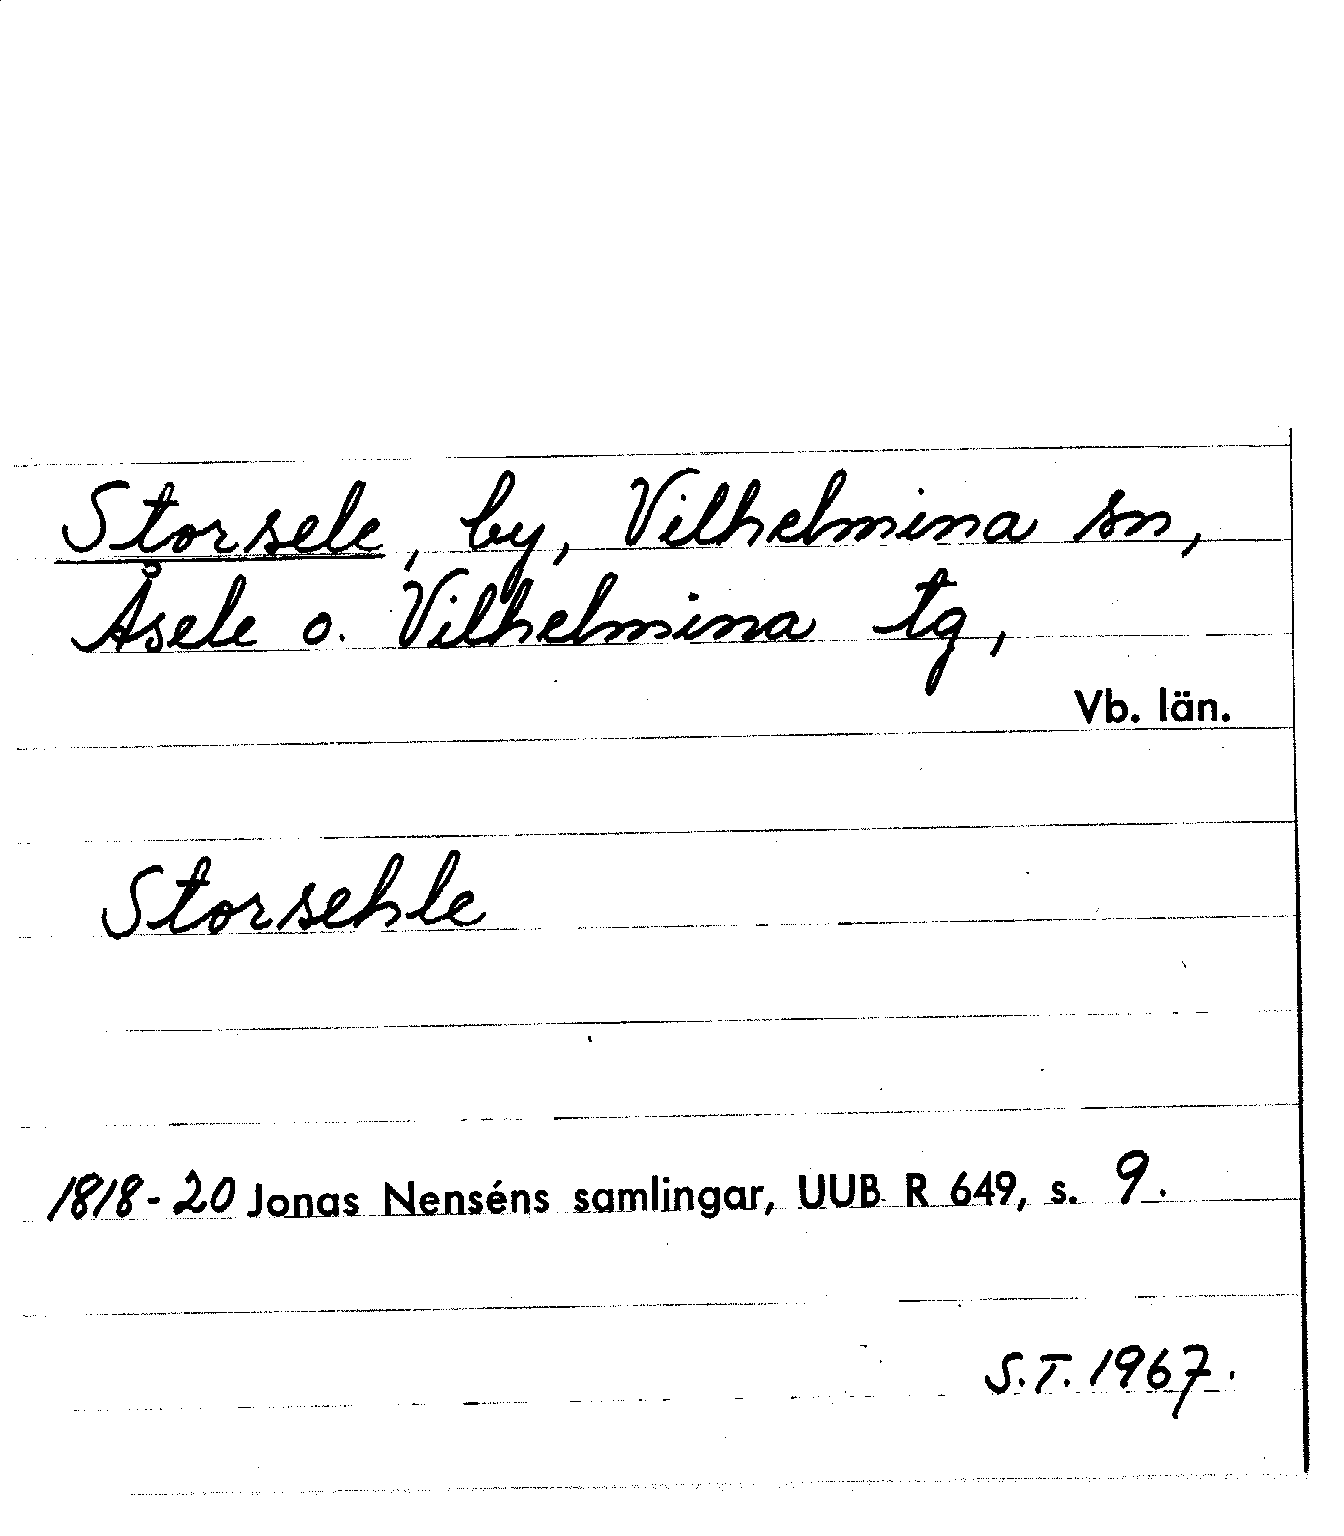 Storsele, by, Vilhelmina sn,
Åsele o. Vilhelmina tg,
Vb. län.
Storsehle
1818-20 Jonas Nenséns samlingar, UUB R 649, s. 9.
S.T. 1967.